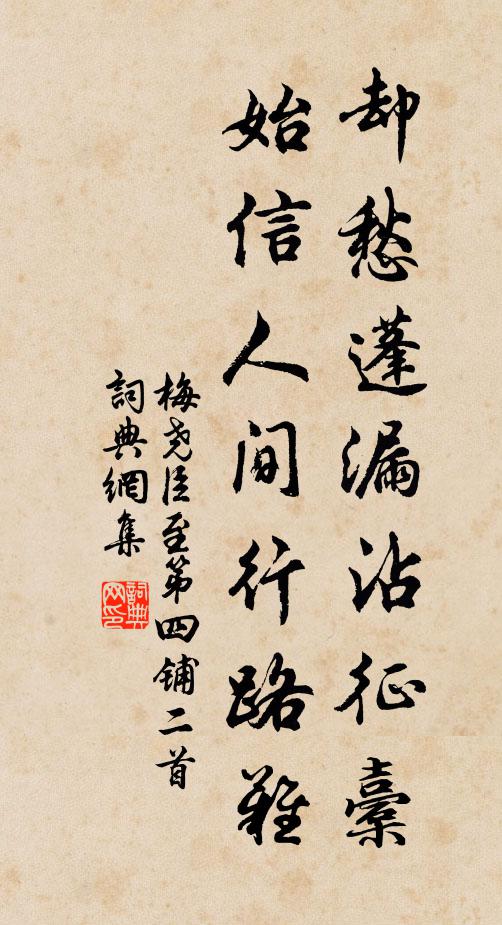 却愁蓬漏沾征橐
始信人间行路難
梅尧臣至第四铺二首
詞典網集
詞典
网印